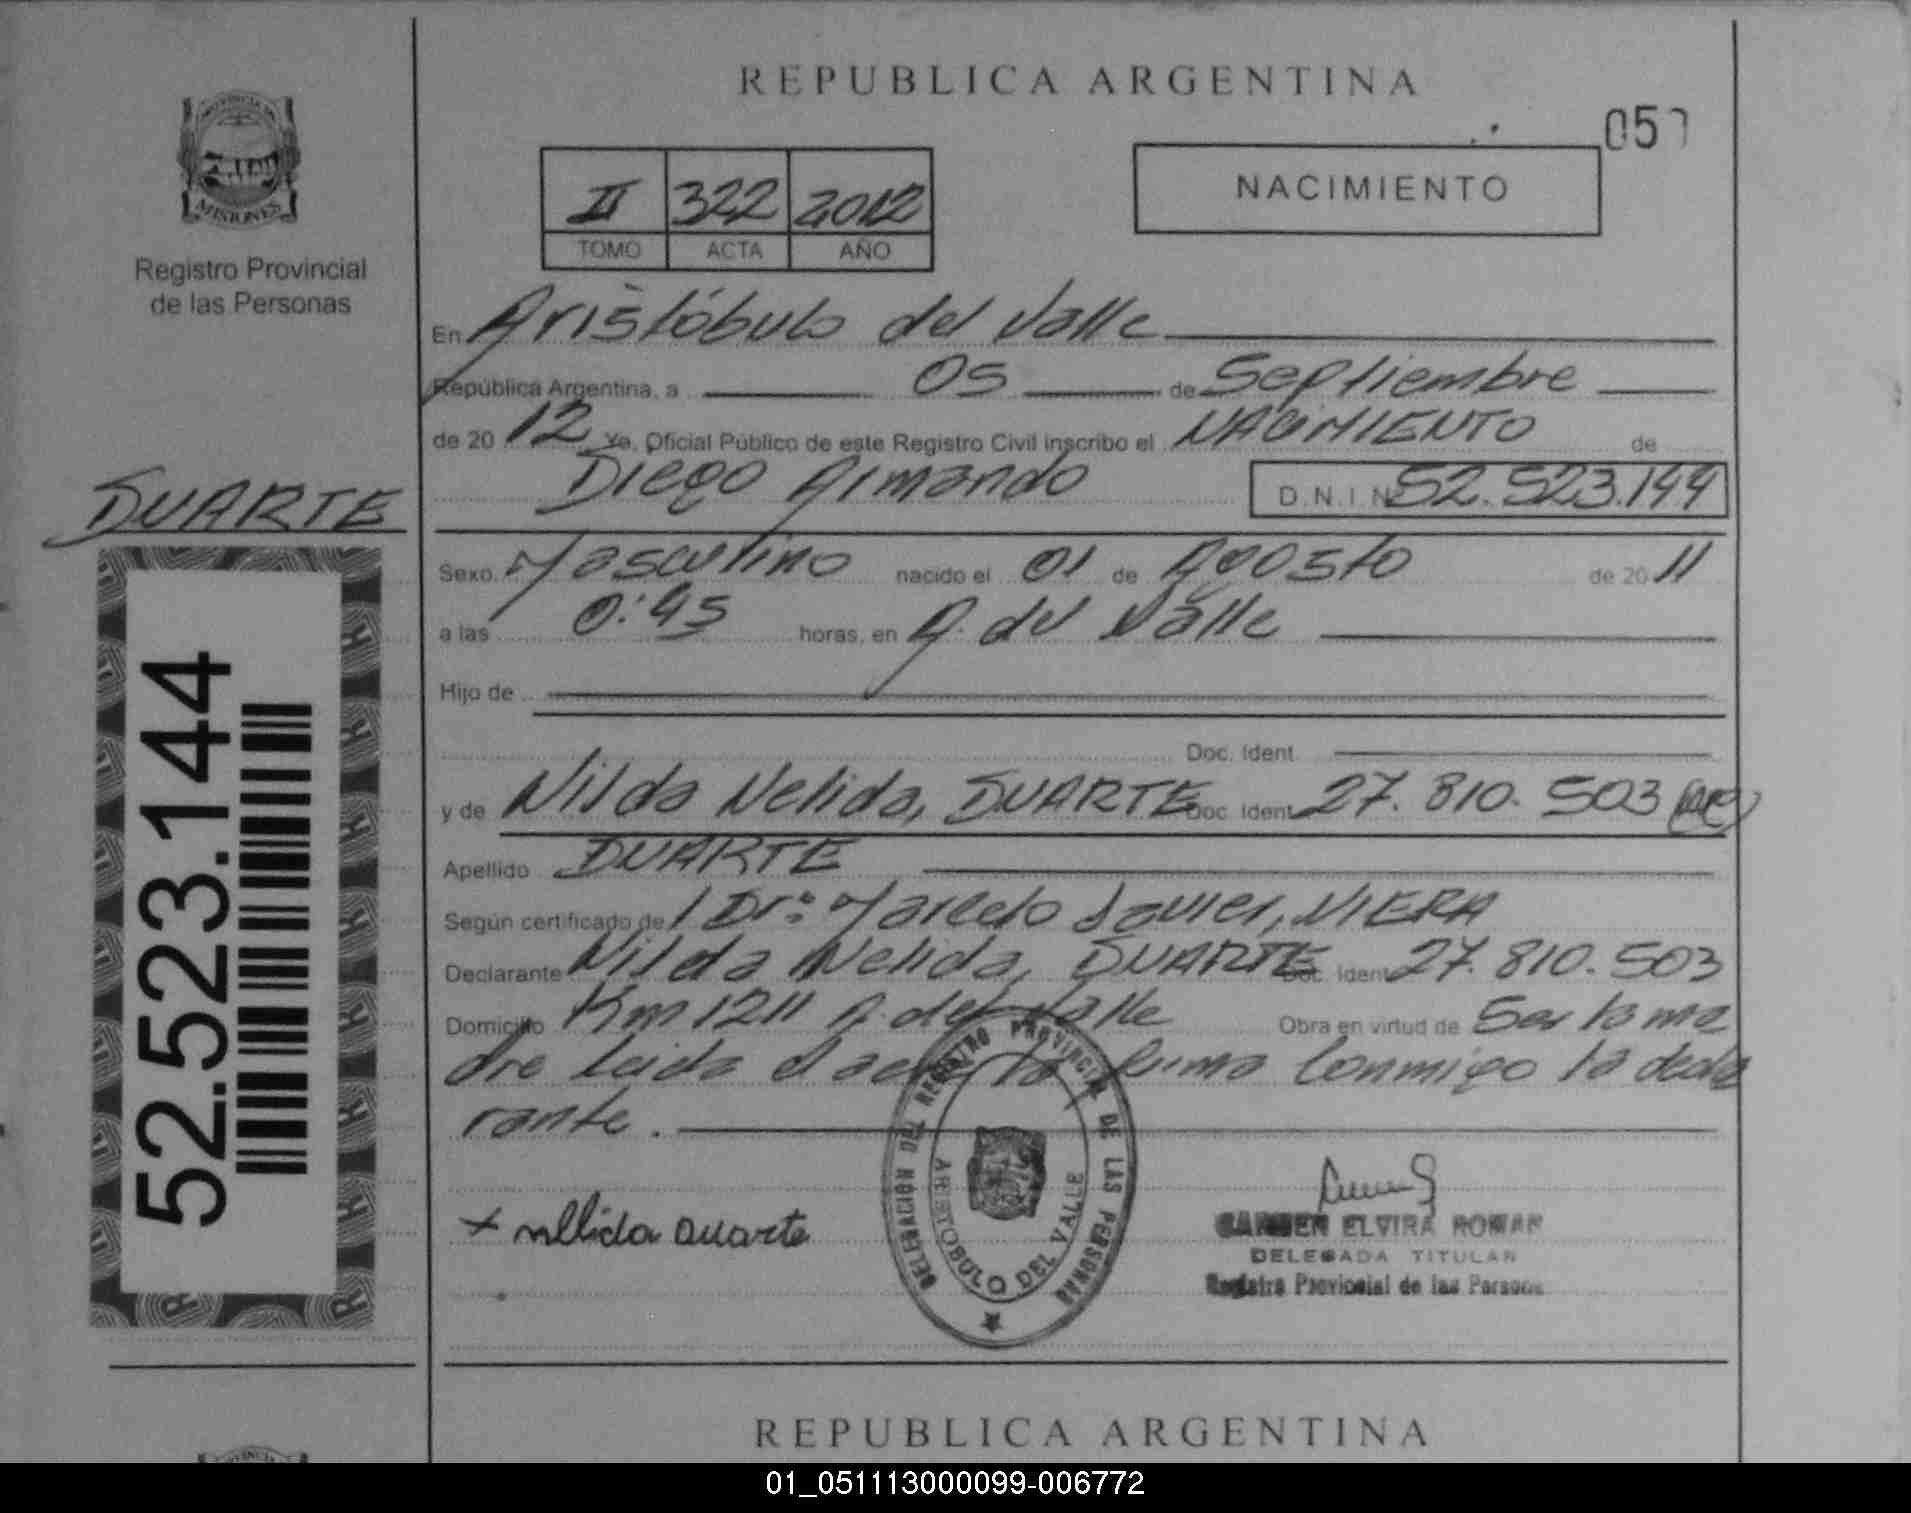 REPUBLICA ARGENTINA
05
PROVINCIA DE
MISIONES
Registro Provincial
de las Personas
II 322 2012
TOMO ACTA AÑO
NACIMIENTO
En Aristóbulo del Valle
República Argentina, a 05 de Septiembre
de 20 12 Yo, Oficial Público de este Registro Civil inscribo el NACIMIENTO de
Diego Armando D.N.I. Nº 52.523.144
DUARTE
Sexo Masculino nacido el 01 de Agosto de 20 11
a las 0:45 horas, en A. del Valle
Hijo de
Doc. Ident.
y de Nilda Nelida, DUARTE Doc. Ident. 27.810.503
Apellido DUARTE
Según certificado de / Dr: Marcelo Javier, VIERA
Declarante Nilda Nelida, DUARTE Doc. Ident. 27.810.503
Domicilio Km 1211 A. del Valle Obra en virtud de Ser la ma
dre Leida el acta la firma Conmigo la decla
rante.
52.523.144
x nellida duarte
DELEGACION DEL REGISTRO PROVINCIAL DE LAS PERSONAS
ARISTOBULO DEL VALLE
CARMEN ELVIRA ROMAN
DELEGADA TITULAR
Registro Provincial de las Personas
REPUBLICA ARGENTINA
01_051113000099-006772